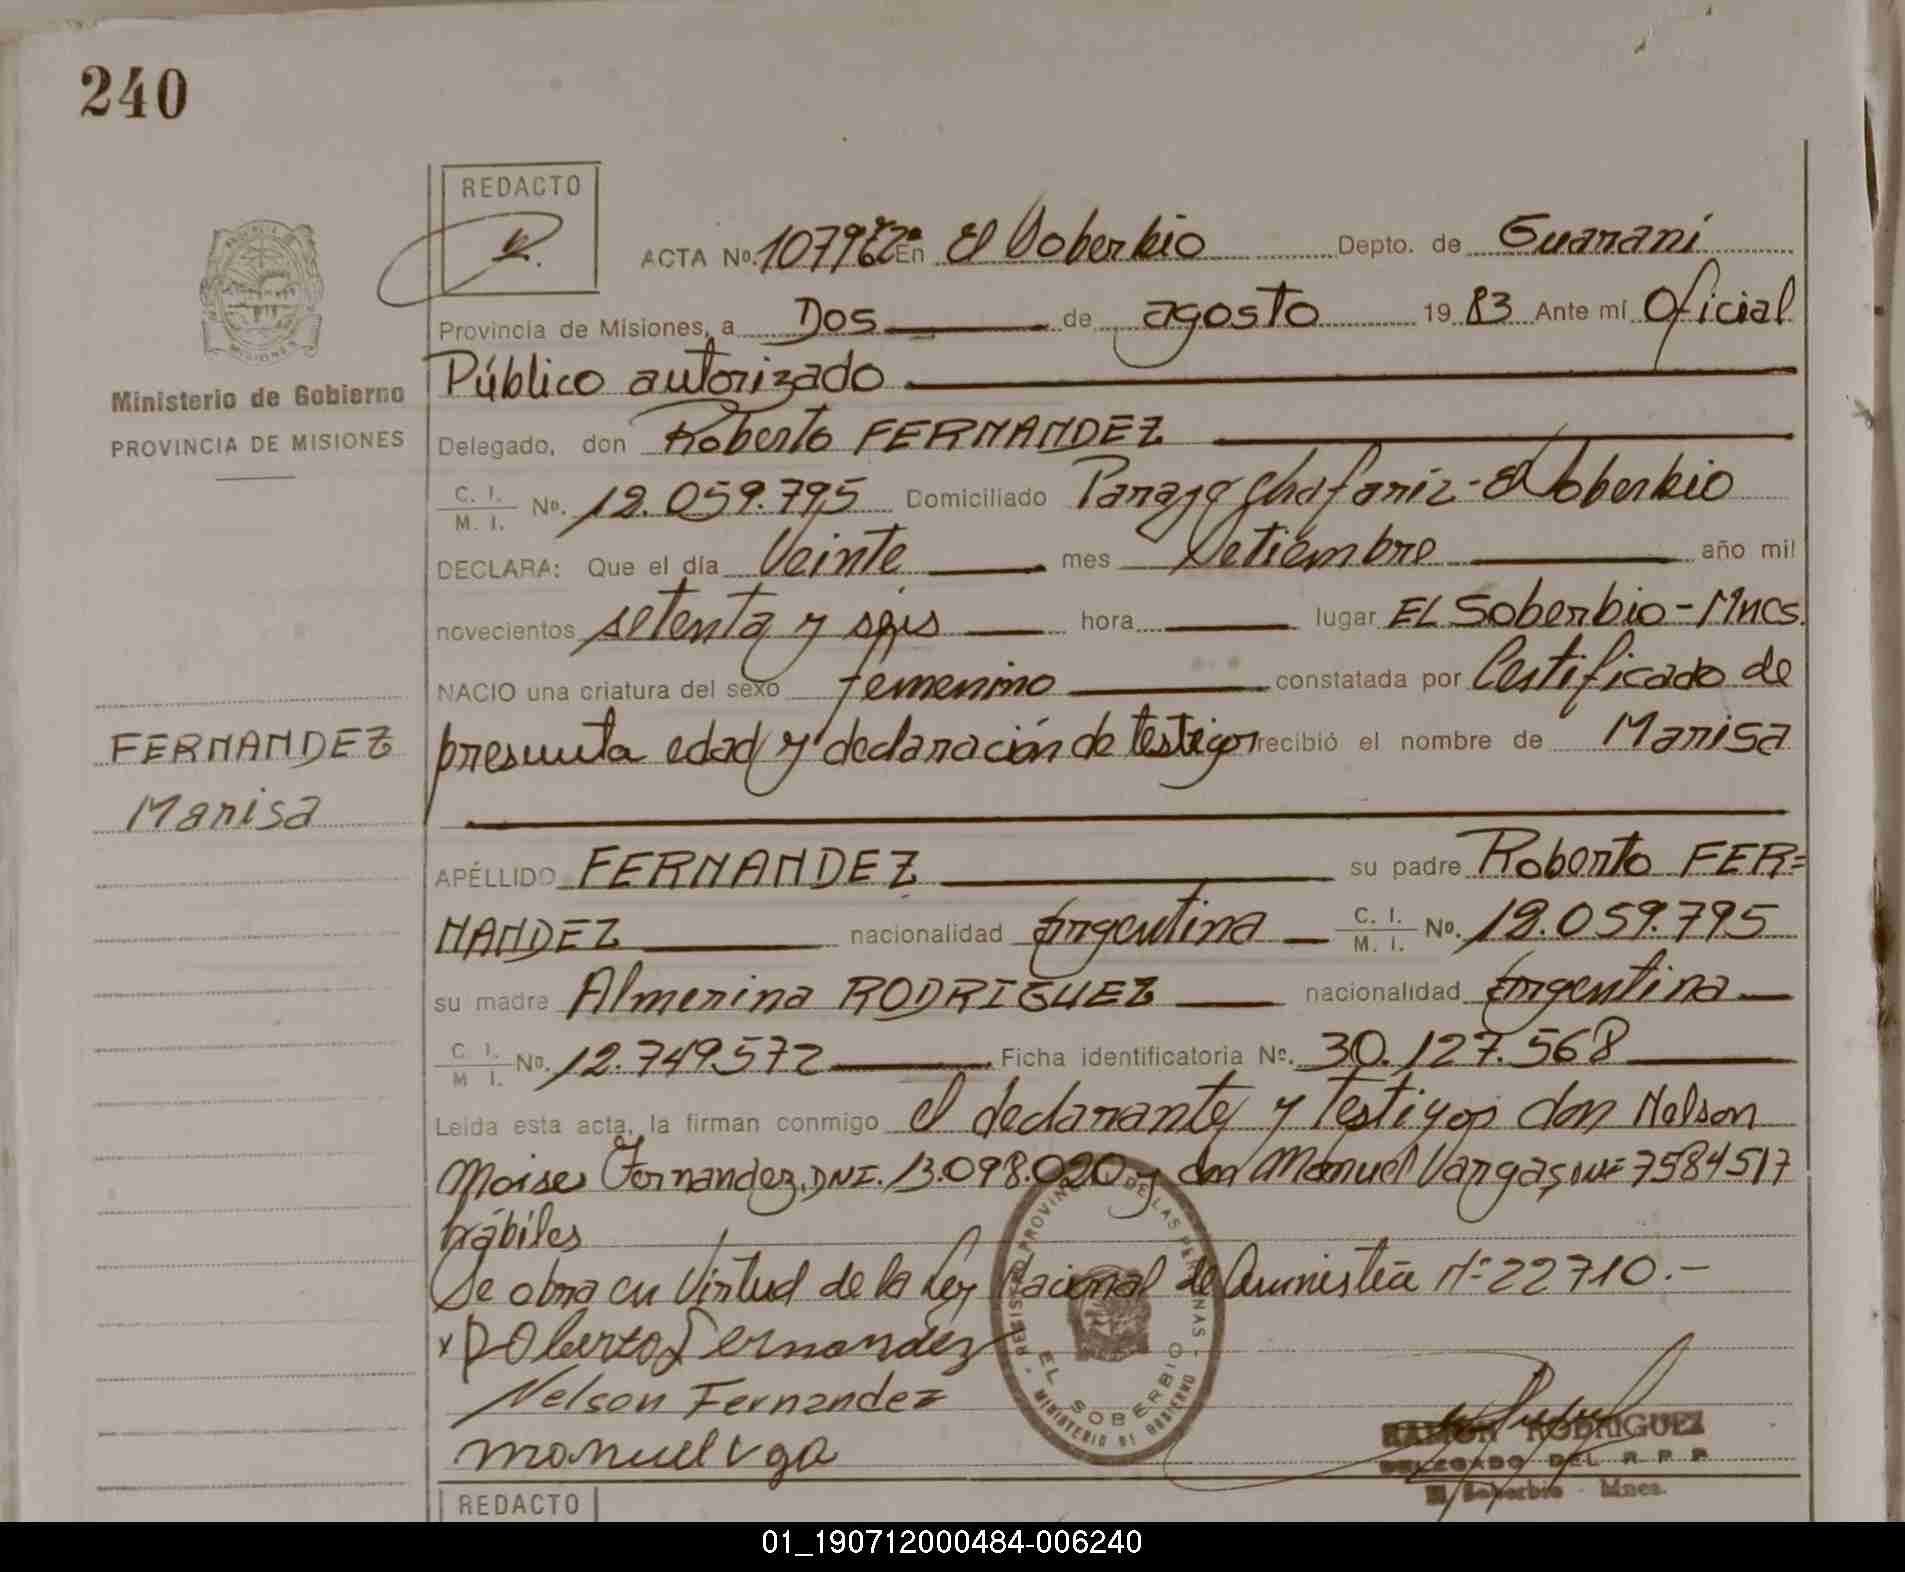 240
REDACTO
ACTA No. 1079 En El Soberbio Depto. de Guarani
Provincia de Misiones, a Dos de agosto 1983 Ante mí Oficial
Público autorizado
Ministerio de Gobierno
PROVINCIA DE MISIONES
Delegado, don Roberto FERNANDEZ
C. I. M. I. No. 12.059.795 Domiciliado Paraje Chafariz - El Soberbio
DECLARA: Que el día Veinte mes Setiembre año mil
novecientos setenta y seis hora lugar EL Soberbio - Mnes.
NACIO una criatura del sexo femenino constatada por Certificado de
presunta edad y declaración de testigos recibió el nombre de Marisa
FERNANDEZ
Marisa
APÉLLIDO FERNANDEZ su padre Roberto FER=
NANDEZ nacionalidad Argentina C. I. M. I. No. 12.059.795
su madre Almerina RODRIGUEZ nacionalidad Argentina
C. I. M. I. No. 12.749.572 Ficha identificatoria No. 30.127.568
Leida esta acta, la firman conmigo el declarante y testigos don Nelson
Moises Fernandez. DNI. 13.098.020 y don Manuel Vargas, DNI 7584517
hábiles
Se obra en Virtud de la Ley Nacional de Amnistía Nº 22710.-
x Roberto Fernandez
Nelson Fernandez
manuel vga
REGISTRO PROVINCIAL DE LAS PERSONAS
EL SOBERBIO
MINISTERIO DE GOBIERNO
RAMON RODRIGUEZ
DELEGADO DEL R P P
El Soberbio - Mnes.
REDACTO
01_190712000484-006240